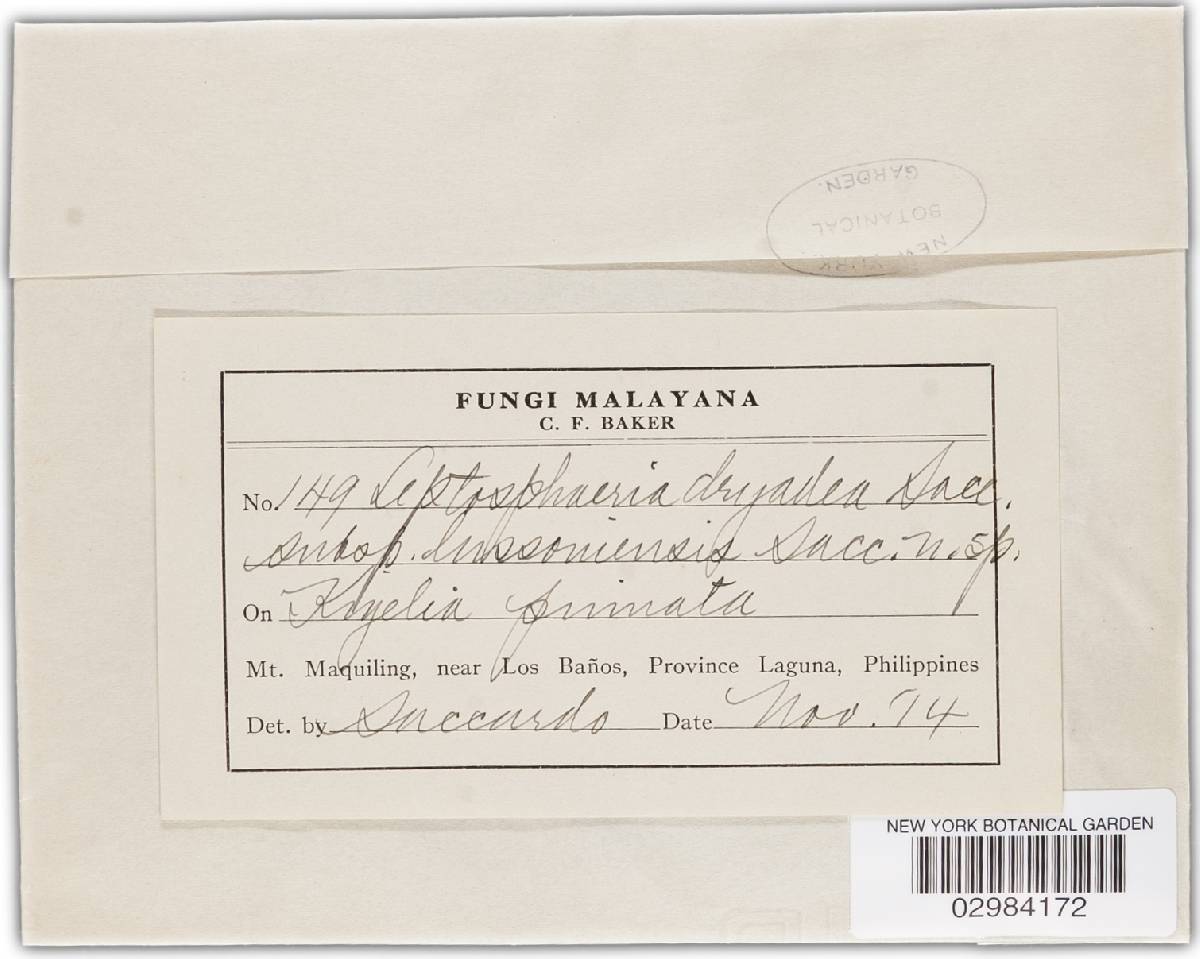 NEW YORK
BOTANICAL
GARDEN.
FUNGI MALAYANA
C. F. BAKER
No. 149 Leptosphaeria dryadea Sacc.
subsp. lussoniensis Sacc. n. sp.
On Kigelia pinnata
Mt. Maquiling, near Los Baños, Province Laguna, Philippines
Det. by Saccardo Date Nov. '14
NEW YORK BOTANICAL GARDEN
02984172